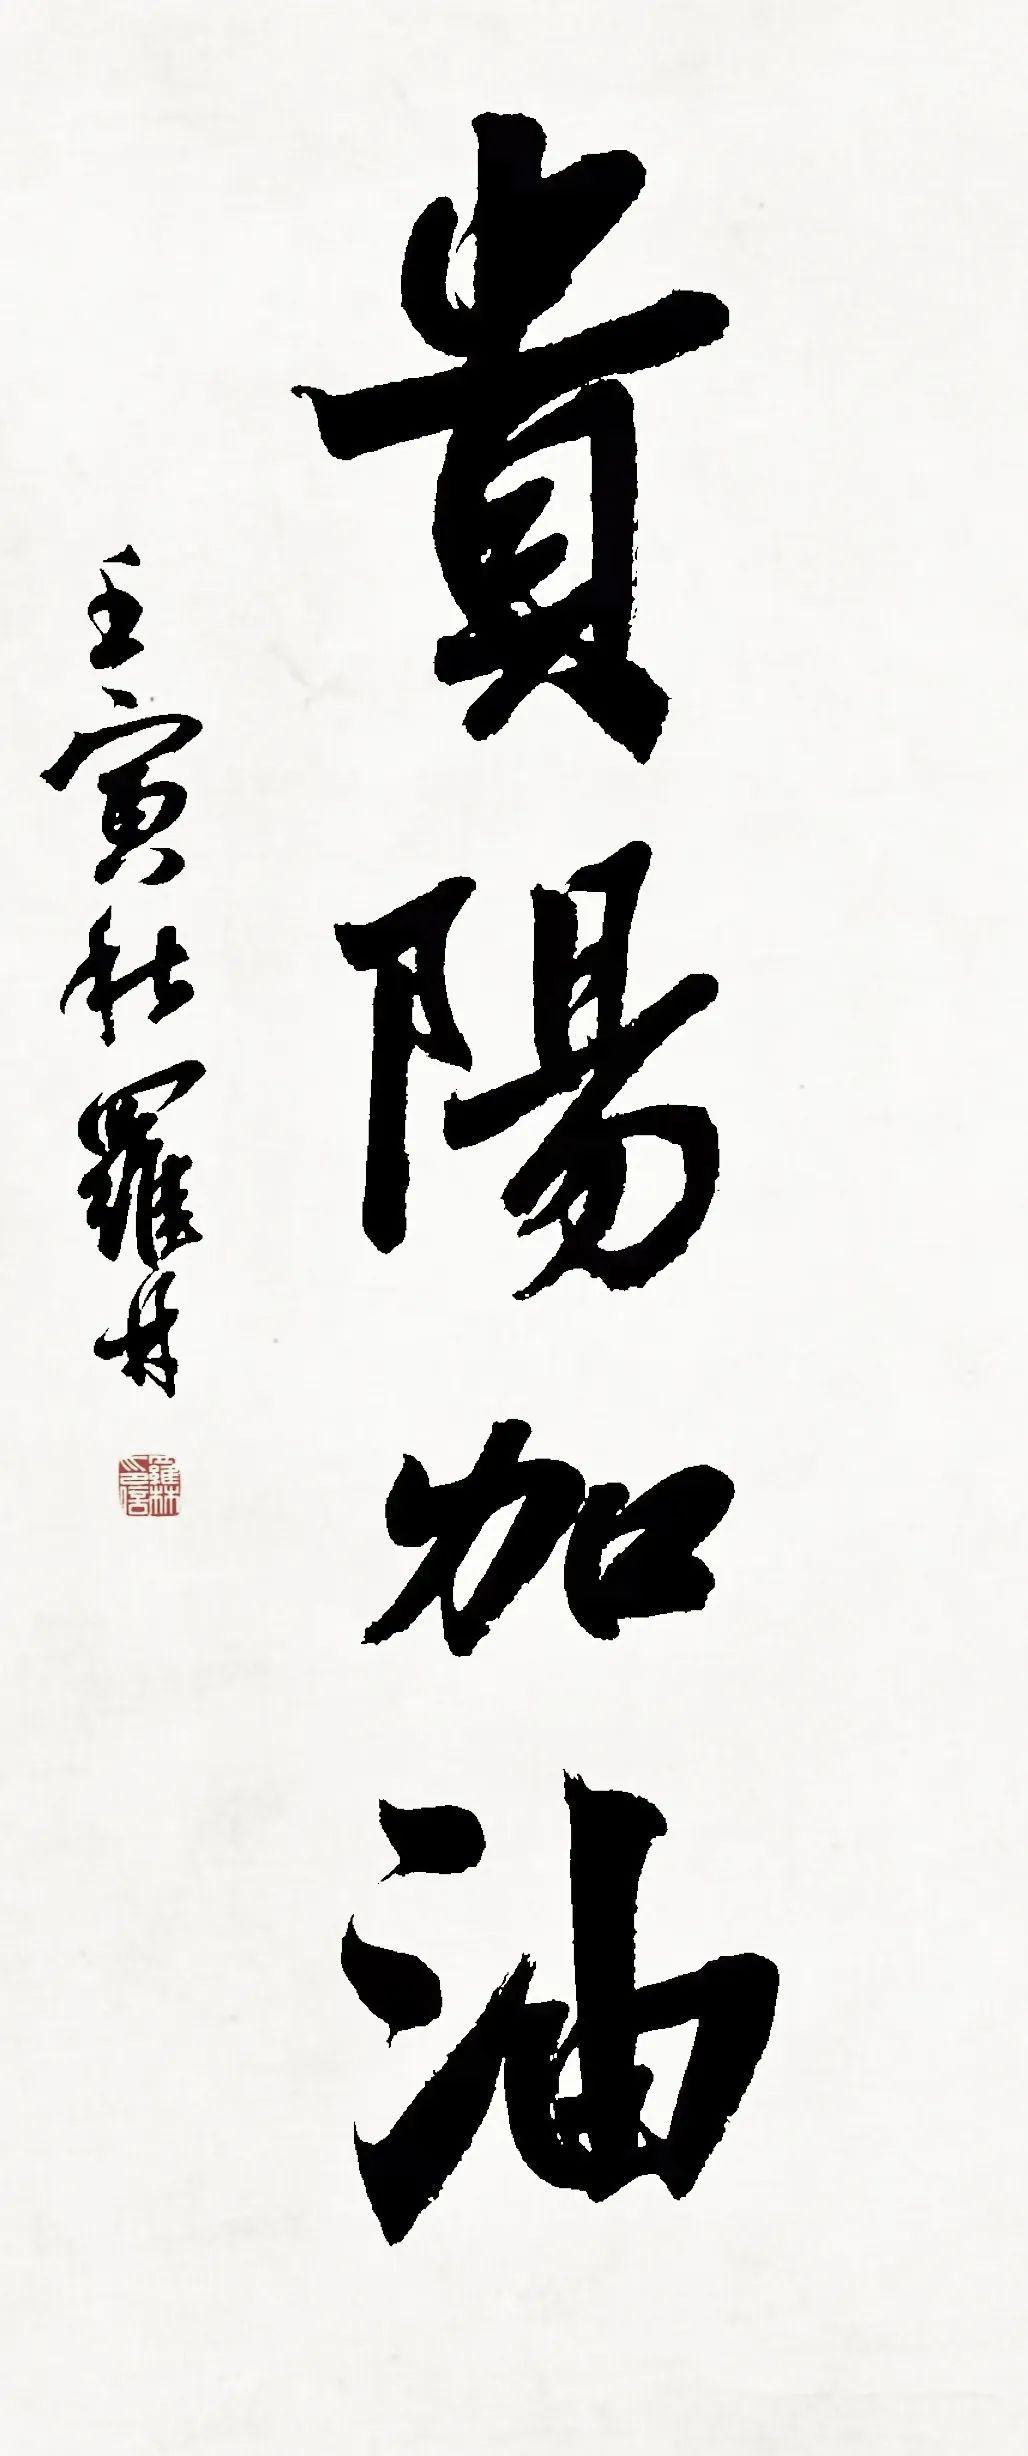 貴陽加油
壬寅秋羅林
羅林印信